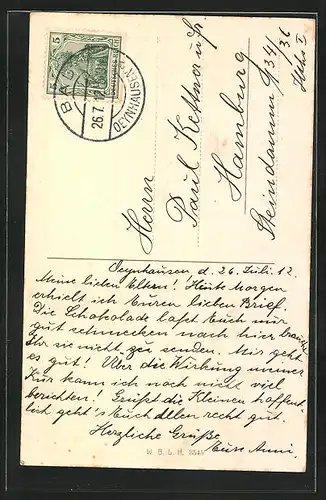 BAD
OEYNHAUSEN
26.7.12
5 5
Herrn
Paul Kettner u. Fr.
Hamburg
Steindamm 34/36
Hths I
Oeynhausen d. 26. Juli. 12.
Meine lieben Eltern! Heute Morgen
erhielt ich Euren lieben Brief.
Die Schokolade laßt Euch nur
gut schmecken nach hier braucht
Ihr sie nicht zu senden. Mir geht
es gut! Über die Wirkung unserer
Kur kann ich noch nicht viel
berichten! Grüßt die Kleinen hoffent-
lich geht's Euch allen recht gut.
Herzliche Grüße
Eure Anni.
W. B. L. H.